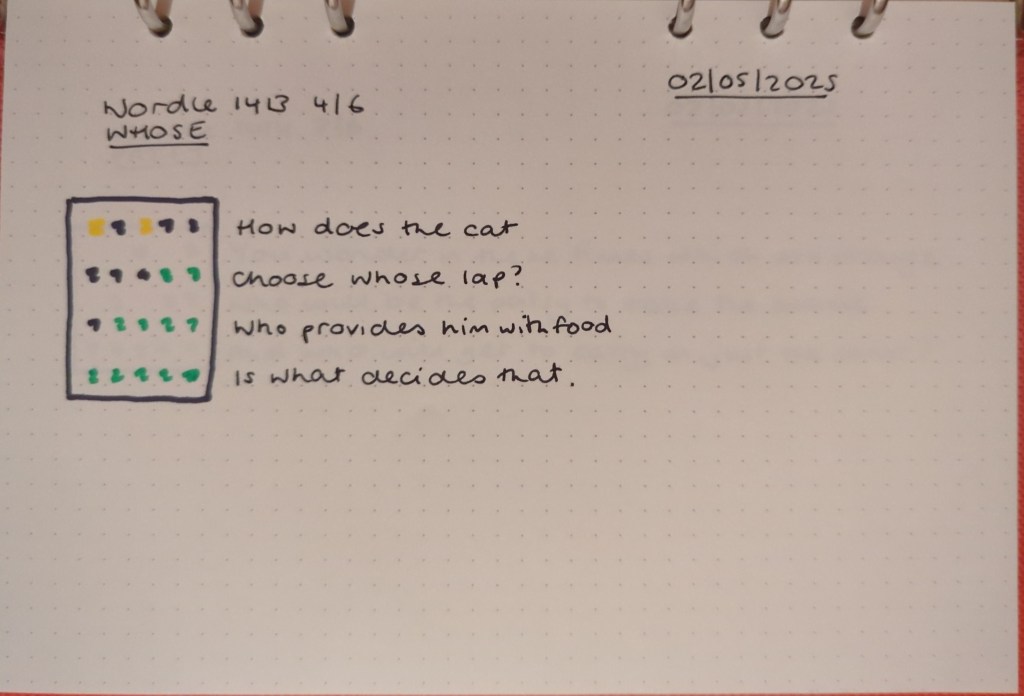 02/05/2025
Wordle 1413 4/6
WHOSE
How does the cat
choose whose lap?
Who provides him with food
Is what decides that.